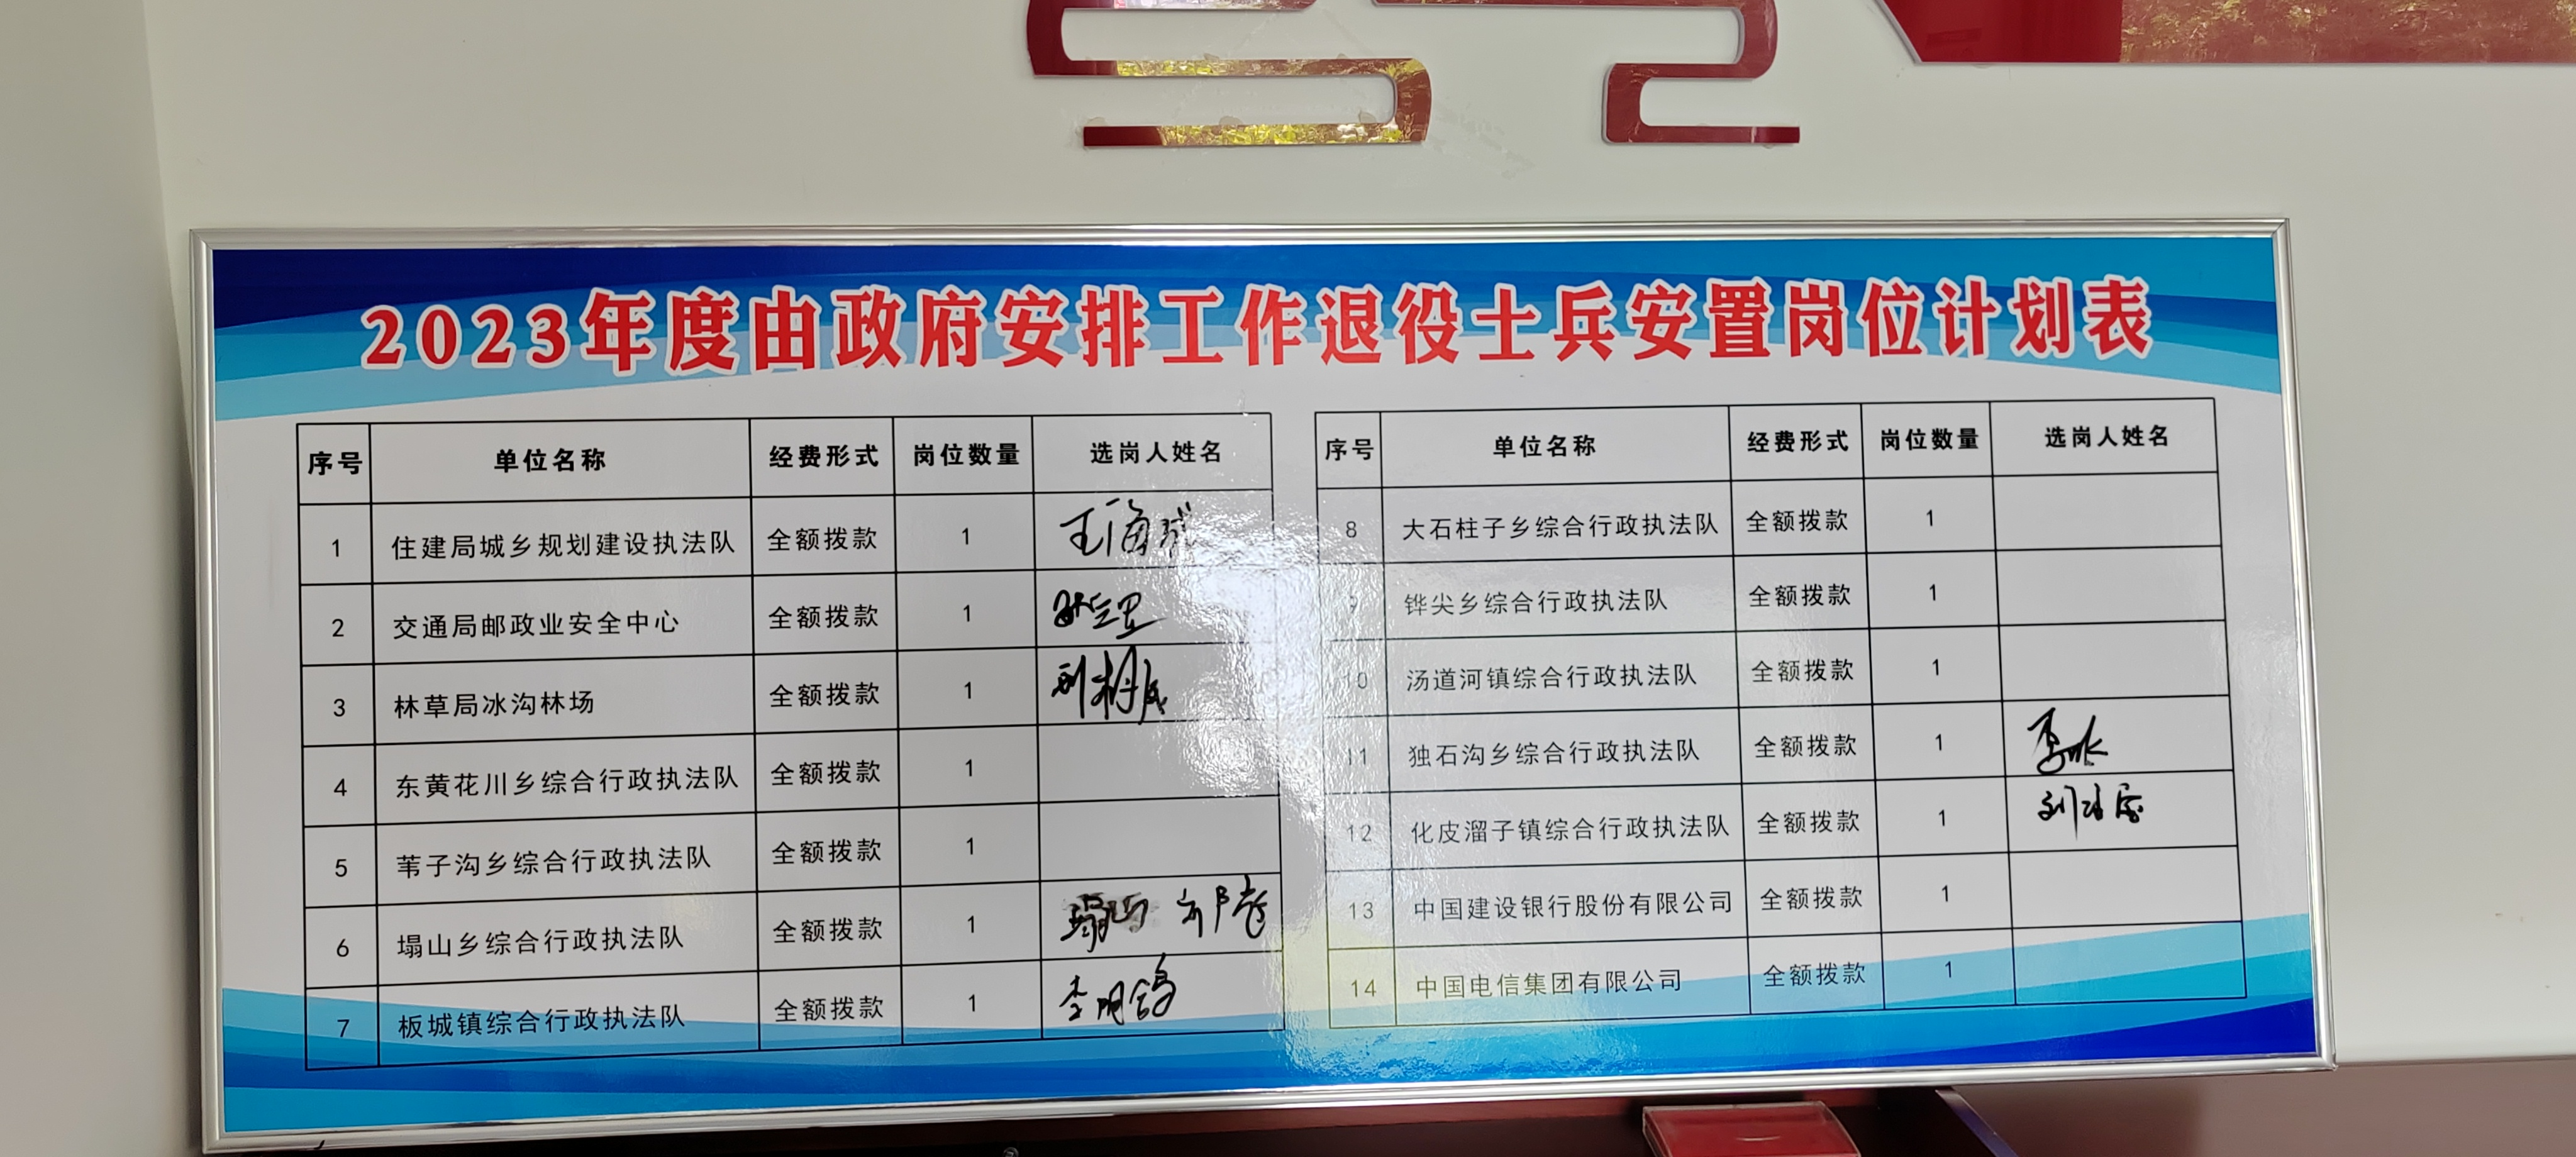 2023年度由政府安排工作退役士兵安置岗位计划表
序号 单位名称 经费形式 岗位数量 选岗人姓名
1 住建局城乡规划建设执法队 全额拨款 1 王海
2 交通局邮政业安全中心 全额拨款 1
3 林草局冰沟林场 全额拨款 1 刘
4 东黄花川乡综合行政执法队 全额拨款 1
5 苇子沟乡综合行政执法队 全额拨款 1
6 塌山乡综合行政执法队 全额拨款 1
7 板城镇综合行政执法队 全额拨款 1 李明
序号 单位名称 经费形式 岗位数量 选岗人姓名
8 大石柱子乡综合行政执法队 全额拨款 1
9 铧尖乡综合行政执法队 全额拨款 1
10 汤道河镇综合行政执法队 全额拨款 1
11 独石沟乡综合行政执法队 全额拨款 1 李
12 化皮溜子镇综合行政执法队 全额拨款 1 刘
13 中国建设银行股份有限公司 全额拨款 1
14 中国电信集团有限公司 全额拨款 1